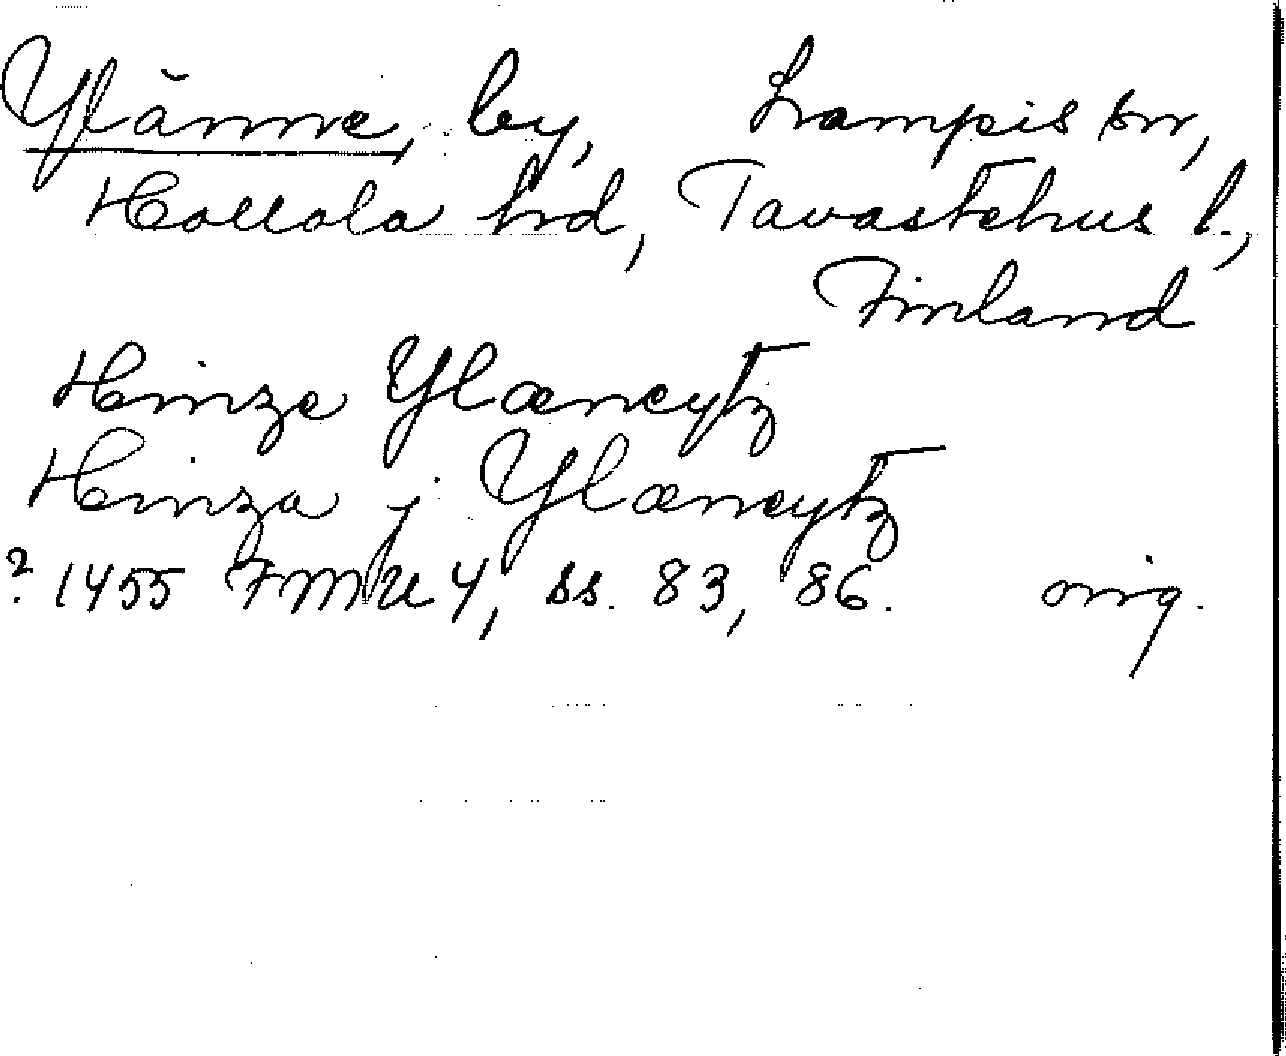 Ylänne, by, Lampis sn,
Hollola hd, Tavastehus l.,
Finland
Hinze Ylæneytz
Hinza j Ylæneytz
? 1455 FMU 4, ss. 83, 86. orig.